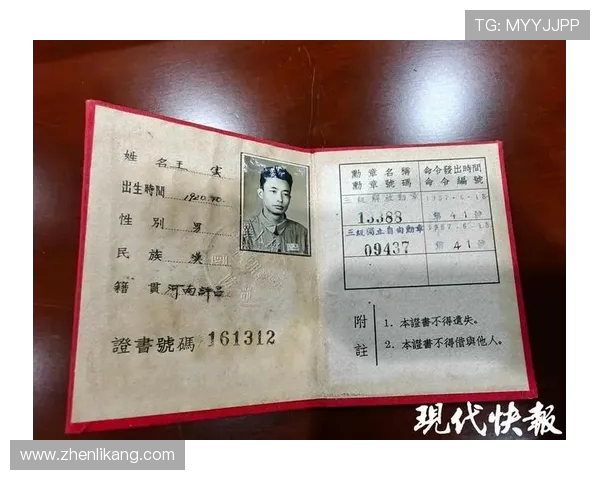 TG: MYYJJPP
姓名 王
出生時間 1920.10
性別 男
民族 漢
籍貫 河南許昌
證書號碼 161312
勳章名稱 命令發出時間
勳章號碼 命令編號
三級解放勳章 1957.6.18
13388 第 41 號
三級獨立自由勳章 1957.6.18
09437 第 41 號
附註
1. 本證書不得遺失。
2. 本證書不得借與他人。
現代快報
www.zhenlikang.com